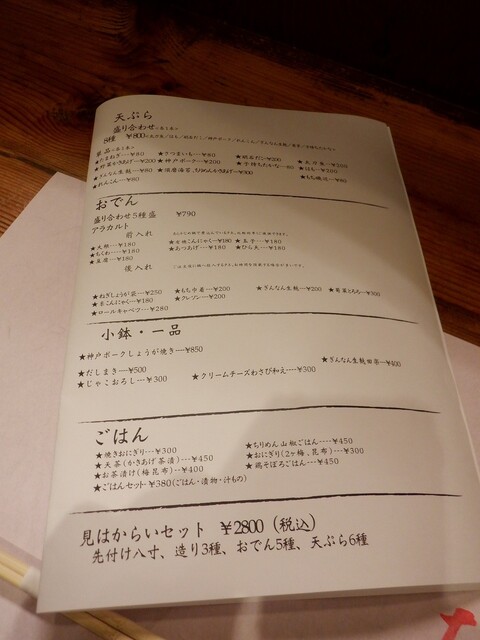 天ぷら
盛り合わせ
8種 ¥800
単品
★たまねぎ‥¥80 ★さつまいも‥¥80
★野菜かきあげ‥¥200 ★神戸ポーク‥¥200 ★子持ちわかな‥¥80 ★はも‥¥200
★ぎんなん生麩‥¥80 ★淡路海苔、ちりめんかきあげ‥¥300
★れんこん‥¥80
おでん
盛り合わせ5種盛 ¥790
アラカルト
前入れ
★大根‥¥180 ★こんにゃく‥¥180 ★玉子‥¥180
★ちくわ‥¥180 ★あつあげ‥¥180 ★ひら天‥¥180
★豆腐‥¥180
後入れ
★ねぎしょうが菜‥¥250 ★もち巾着‥¥200 ★ぎんなん生麩‥¥200 ★菊菜ともち‥¥300
★糸こんにゃく‥¥180 ★クレソン‥¥200
★ロールキャベツ‥¥280
小鉢・一品
★神戸ポークしょうが焼き‥‥¥850
★ぎんなん生麩田楽‥‥¥400
★だしまき‥¥500
★じゃこおろし‥¥300 ★クリームチーズわさび和え‥‥¥300
ごはん
★焼きおにぎり‥¥300 ★ちりめん山椒ごはん‥‥¥450
★天茶(かきあげ茶漬)‥‥¥450 ★おにぎり(2ヶ梅、昆布)‥¥300
★お茶漬け(梅昆布)‥‥¥400 ★鶏そぼろごはん‥‥¥450
★ごはんセット‥¥380(ごはん・漬物・汁もの)
見はからいセット ¥2800(税込)
先付け八寸、造り3種、おでん5種、天ぷら6種